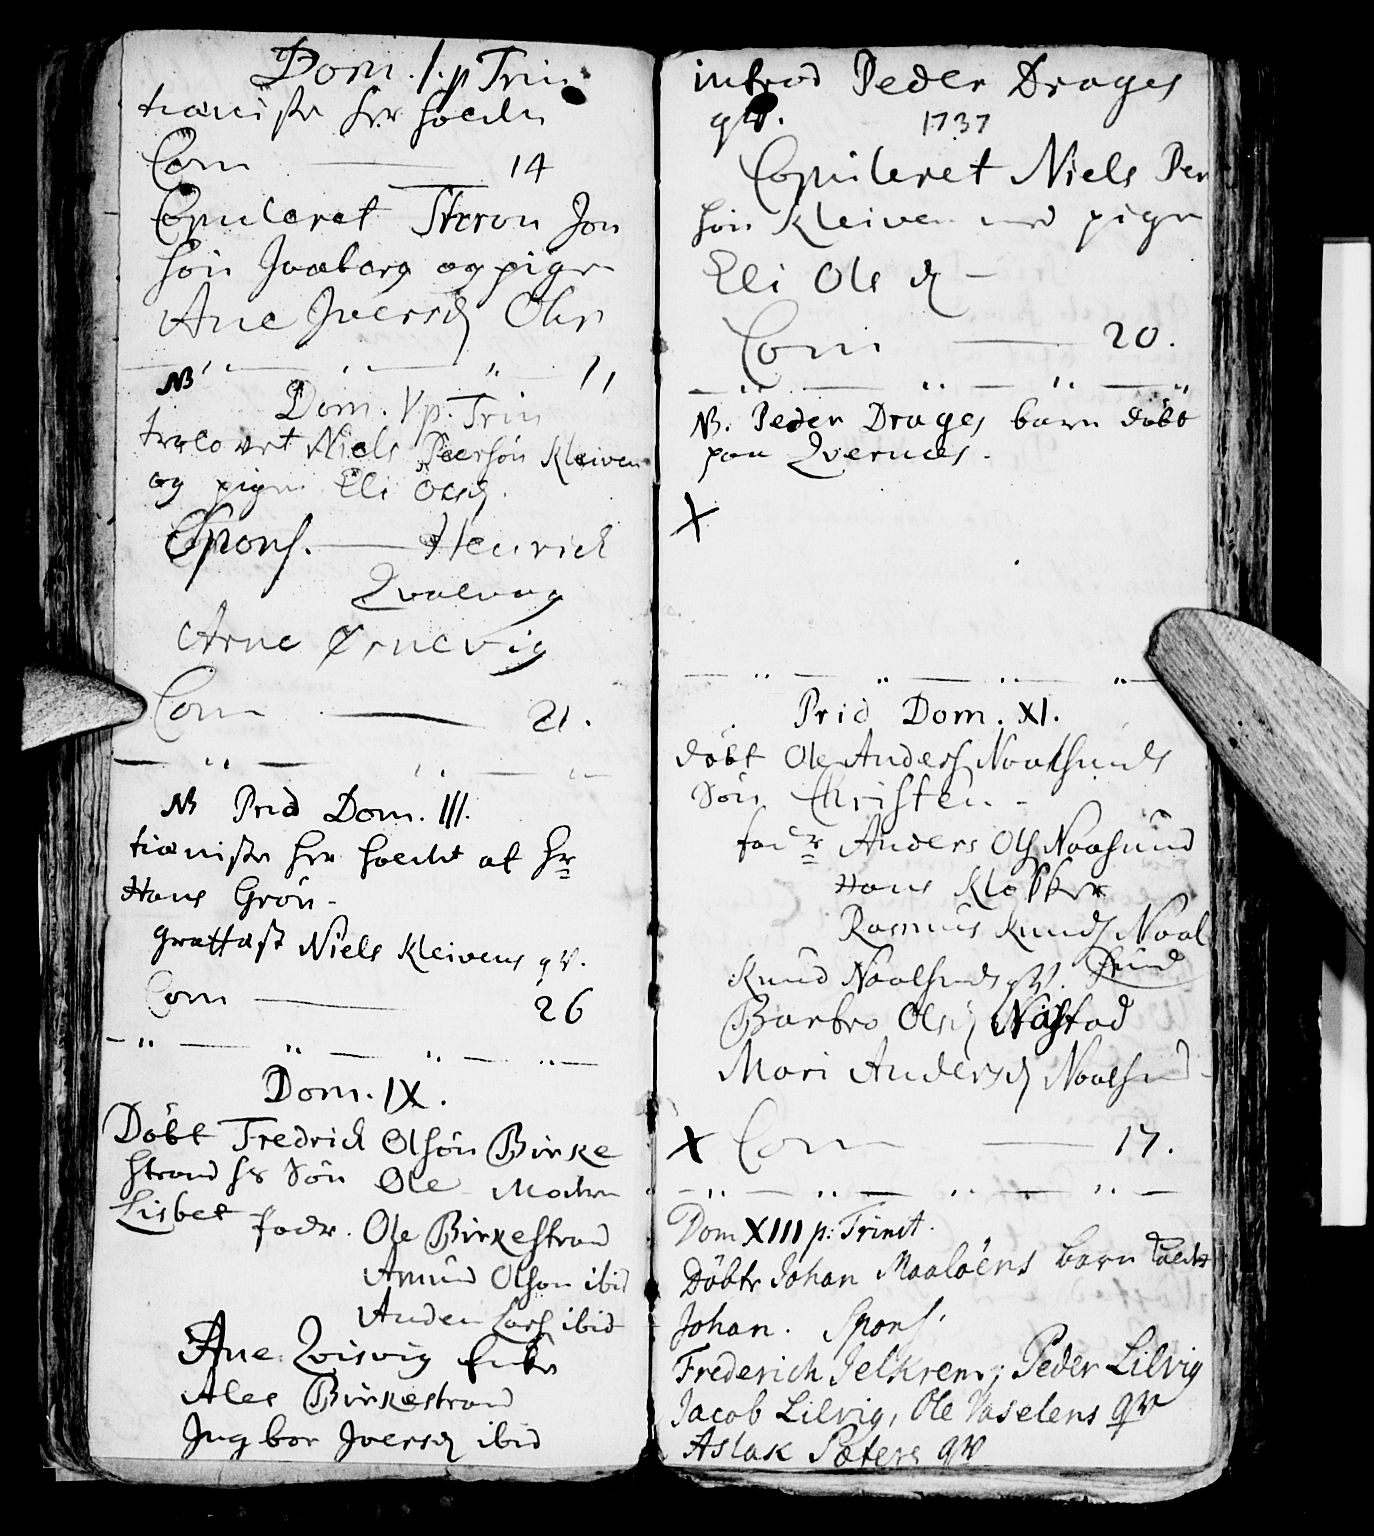 Dom. 1. p Trin
tieniste her holden
Com 14
Copuleret Steen Jon
søn Ivaborg og pigen
Ane Iversd Ols
NB 11
Dom. V p. Trin
trolovet Niels Peersøn Kleiven
og pigen Eli Olsd.
Spons. Henrich
Qvalvog
Arne Ørnevig
Com 21.
NB Prid Dom. III.
tieniste her holdet af Hr
Hans Grøn -
grattast Niels Kleivens qv.
Com 26
Dom. IX.
Døbt Fredrich Olsøn Birke
strand hs Søn Ole Moder
Lisbet fadr. Ole Birkestrand
Amund Olson ibid
Anders Lars ibid
Ane Qvisvig Enke
Ales Birkestrand
Ingbor Iversd ibid
introd Peder Drages
qv. 1737
Copuleret Niels Per
søn Kleiven med pigen
Eli Ols d -
Com 20.
NB. Peder Drages barn døbt
paa Qvernæs.
X
Prid Dom. XI.
døbt Ole Anders Naalsunds
Søn Christen -
fadr Anders Ols Naasund
Hans Klokker
Rasmus Knuds Naal
sund
Knud Naalsunds qv.
Barbro Olsd Nastad
Mari Andersd Naalsund
X Com 17.
Dom XIII p: Trinit.
Døbte Johan Maaløens barn kaldt
Johan. Spons.
Frederich Jelkrem; Peder Lilvig
Jacob Lilvig, Ole Vaselens qv
Aslak Sæters qv